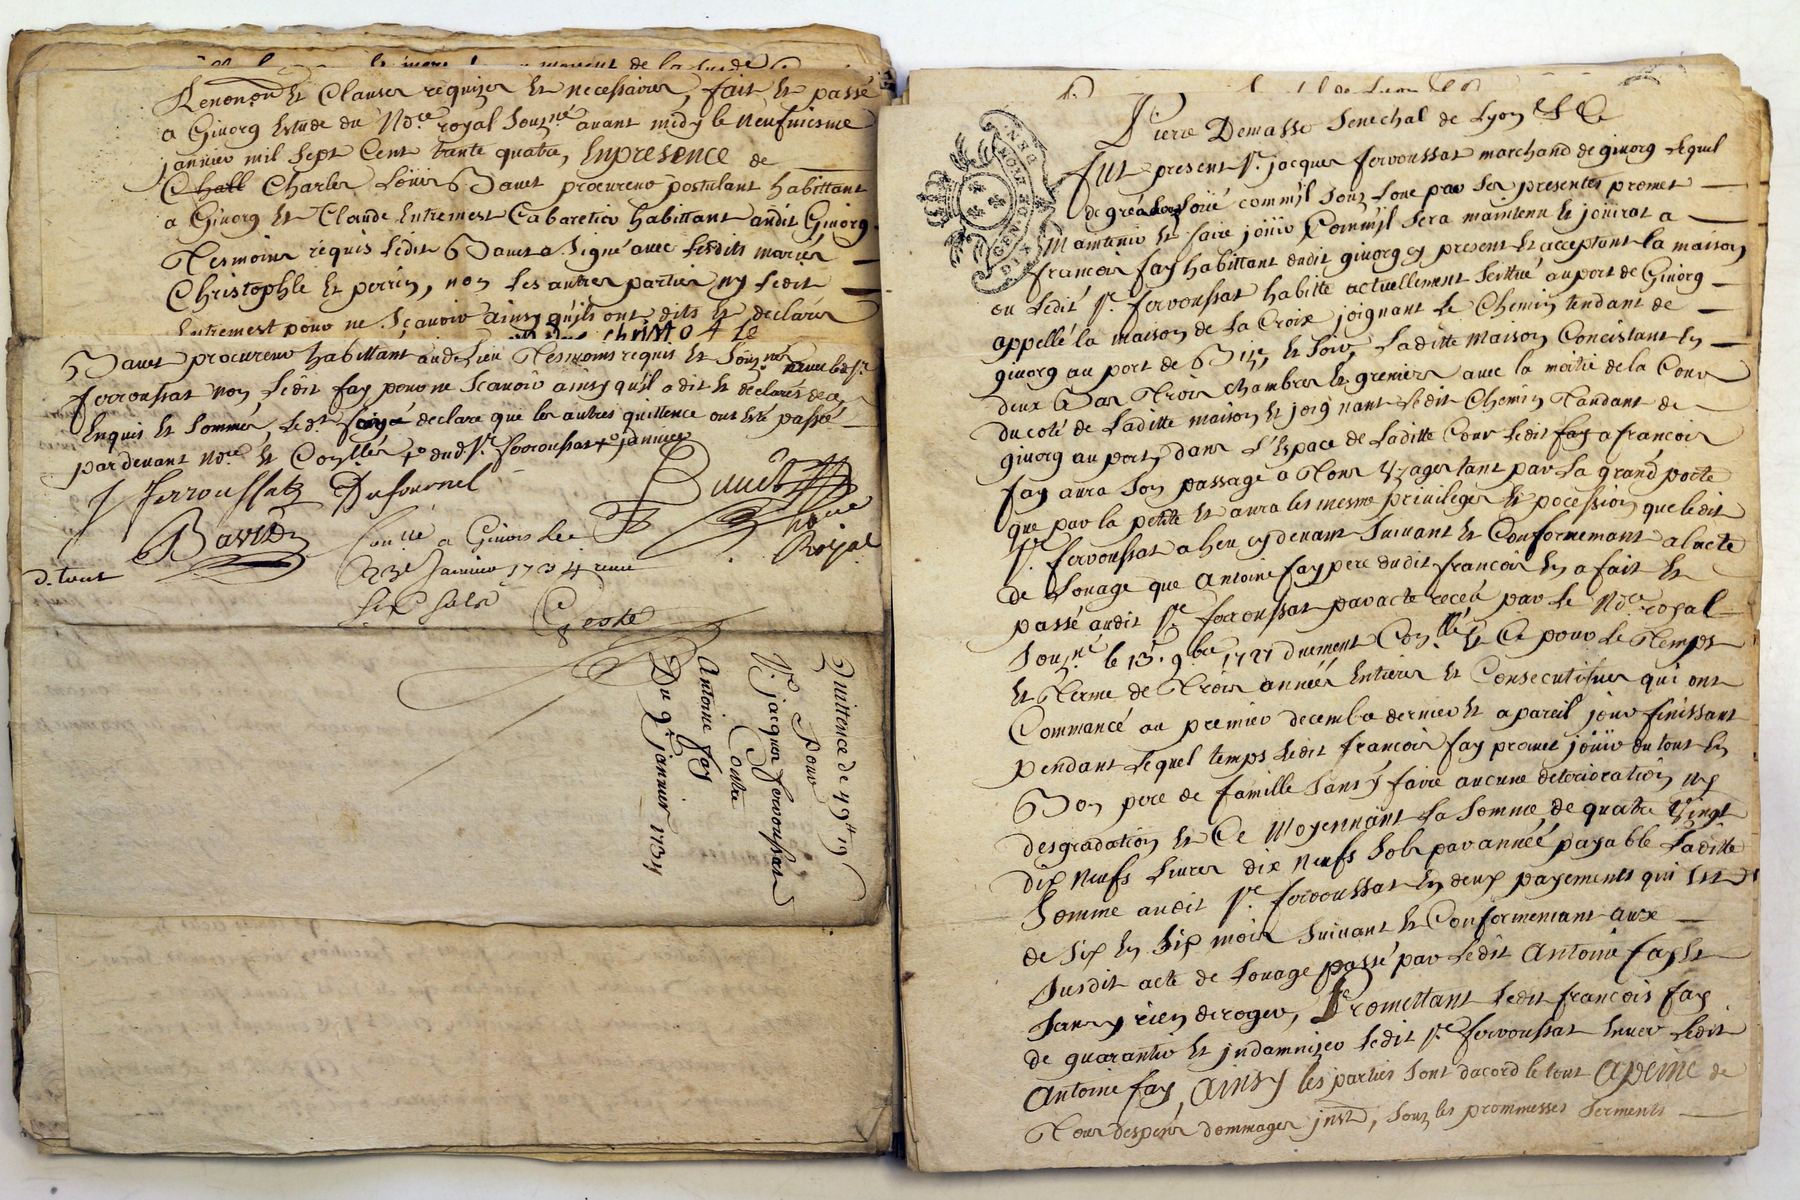 Renonon et Clauses requises et necessaires, fait et passé
a Givorg Estude du No.re royal Sousné avant midy le Neufviesme
janvier mil Sept Cent trente quatre, En presence de
Charles Loüis Bavet procureur postulant habittant
a Givorg et Claude Entremest Cabaretier habittant audit Givorg
Tesmoins requis Ledit Bavet a Signé avec Lesdits mariés
Christophle et perrin, non Les autres parties ny Ledit
Entremest pour ne Sçavoir ainsy qu'ils ont dits et declarés
Bavet procureur habittant audt Lieu Tesmoins requis et Sousnés avec led Sr
ferroussat non Ledit fay pour ne Sçavoir ainsy qu'il a dit et declaré de ce
Enquis et Sommés, Ledt declare que les autres quittence ont Esté passé
pardevant No.re et Con.llés dud Sr. ferroussat janvier
J Ferroussat Dufournel
Bavet
Con.llé a Givors le
23e Janvier 1734 receu
Six sols
Geste
d. tout
Royal
Quittence de 49lt 19s
Pour
Sr. jacques ferroussat
Contre
Antoine fay
Du 9e janvier 1734
Pierre Demasso Senechal de Lyon &c
fut present Sr. jacques ferroussat marchand de givorg Lequel
de gré a Loüé comm'il Souz Loue par Ses presentes promet
Maintenir et faire joüir, Comm'il Sera maintenu et joüirat a
francois fay habittant dudit givorg cy present et acceptant la maison
ou Ledit Sr. ferroussat habitte actuellement Scittué au port de Givorg
appellé la maison de La Croix joignant Le Chemin tendant de
givorg au port de Bize, et Soir, Laditte maison Concistant En
deux Bas Trois chambres et greniers avec la moitié de la Cour
du coté de Laditte maison et joignant Ledit Chemin Tandant de
givorg au port, dans L'Espace de Laditte Cour Ledit fay a francois
fay aura Son passage a Tous Uzages tant par La grand porte
que par la petitte et aura les mesme privileges et pocession que ledit
Sr. ferroussat a heu cy devant Suivant et Conformemant a lacte
de Louage que Antoine fay pere dudit francois En a fait et
passé audit Sr. ferroussat par acte receu par Le No.re royal
Souzné le 13e. 9bre 1721 duement Con.llé et Ce pour Le Temps
et Terme de Trois années Entieres et Consecutifues qui ont
Commancé au premier decembre dernier et a pareil jour finissant
pendant Lequel temps Ledit francois fay promet joüir du tout En
Bon pere de famille Sans y faire aucune deterioration ny
desgradation et Ce Moyennant La Somme de quatre Vingt
dix Neufs Livres dix Neufs Sols par année payable Laditte
Somme audit Sr. ferroussat En deux payements qui Est
de Six En Six mois Suivant et Conformemant aux
Susdit acte de Louage passé par Ledit Antoine fay et
Sans y rien deroger, Promettant Ledit francois fay
de guarantir et jndamnizer Ledit Sr. ferroussat Enver Ledit
Antoine fay, Ainsy les parties Sont dacord le tout A peine de
Tous despens dommages jnst, Souz les prommesses Serments